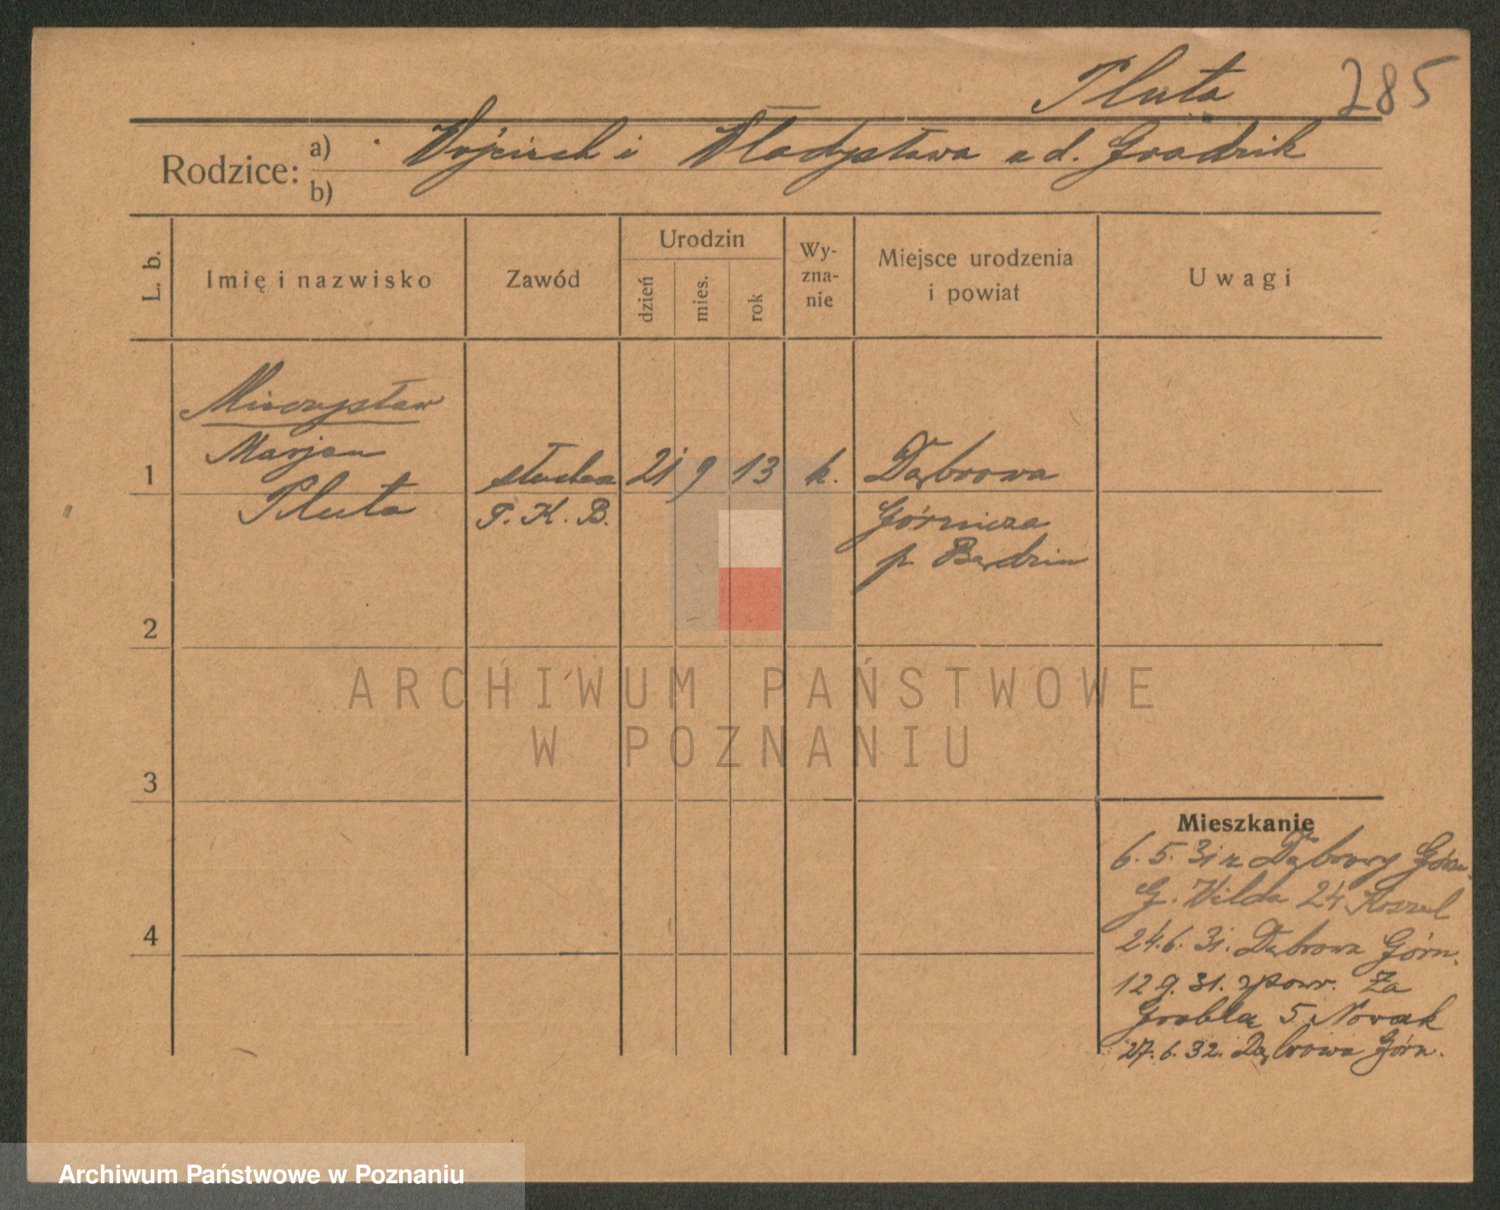 Pluta 285
Rodzice: a) Wojciech i Władysława z d. Gradzik
b)
L. b. Imię i nazwisko Zawód Urodzin dzień mies. rok Wy-zna-nie Miejsce urodzenia i powiat Uwagi
Mieczysław
Marjan
1 Pluta słuchacz 21 9 13 k. Dąbrowa
P. K. B. Górnicza
p. Będzin
2
ARCHIWUM PAŃSTWOWE
W POZNANIU
3
Mieszkanie
6. 5. 31 z Dąbrowy Górn.
G. Wilda 24
4
24. 6. 31. Dąbrowa Górn.
12 9. 31. zpow. Za
Groblą 5 Nowak
27. 6. 32. Dąbrowa Górn.
Archiwum Państwowe w Poznaniu